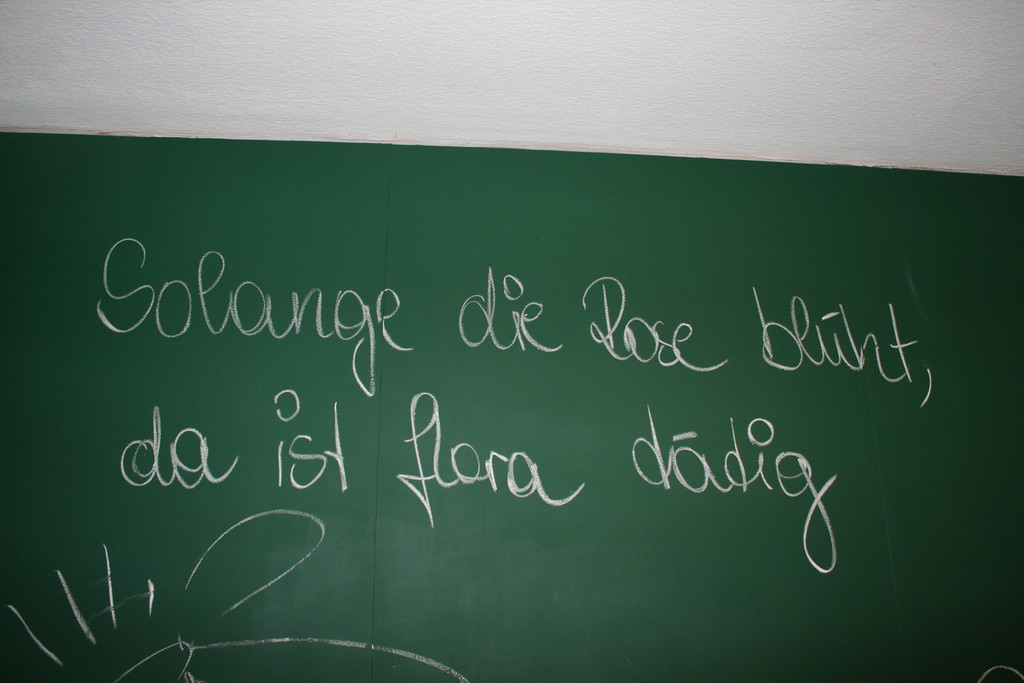 Solange die Rose blüht,
da ist flora tädig